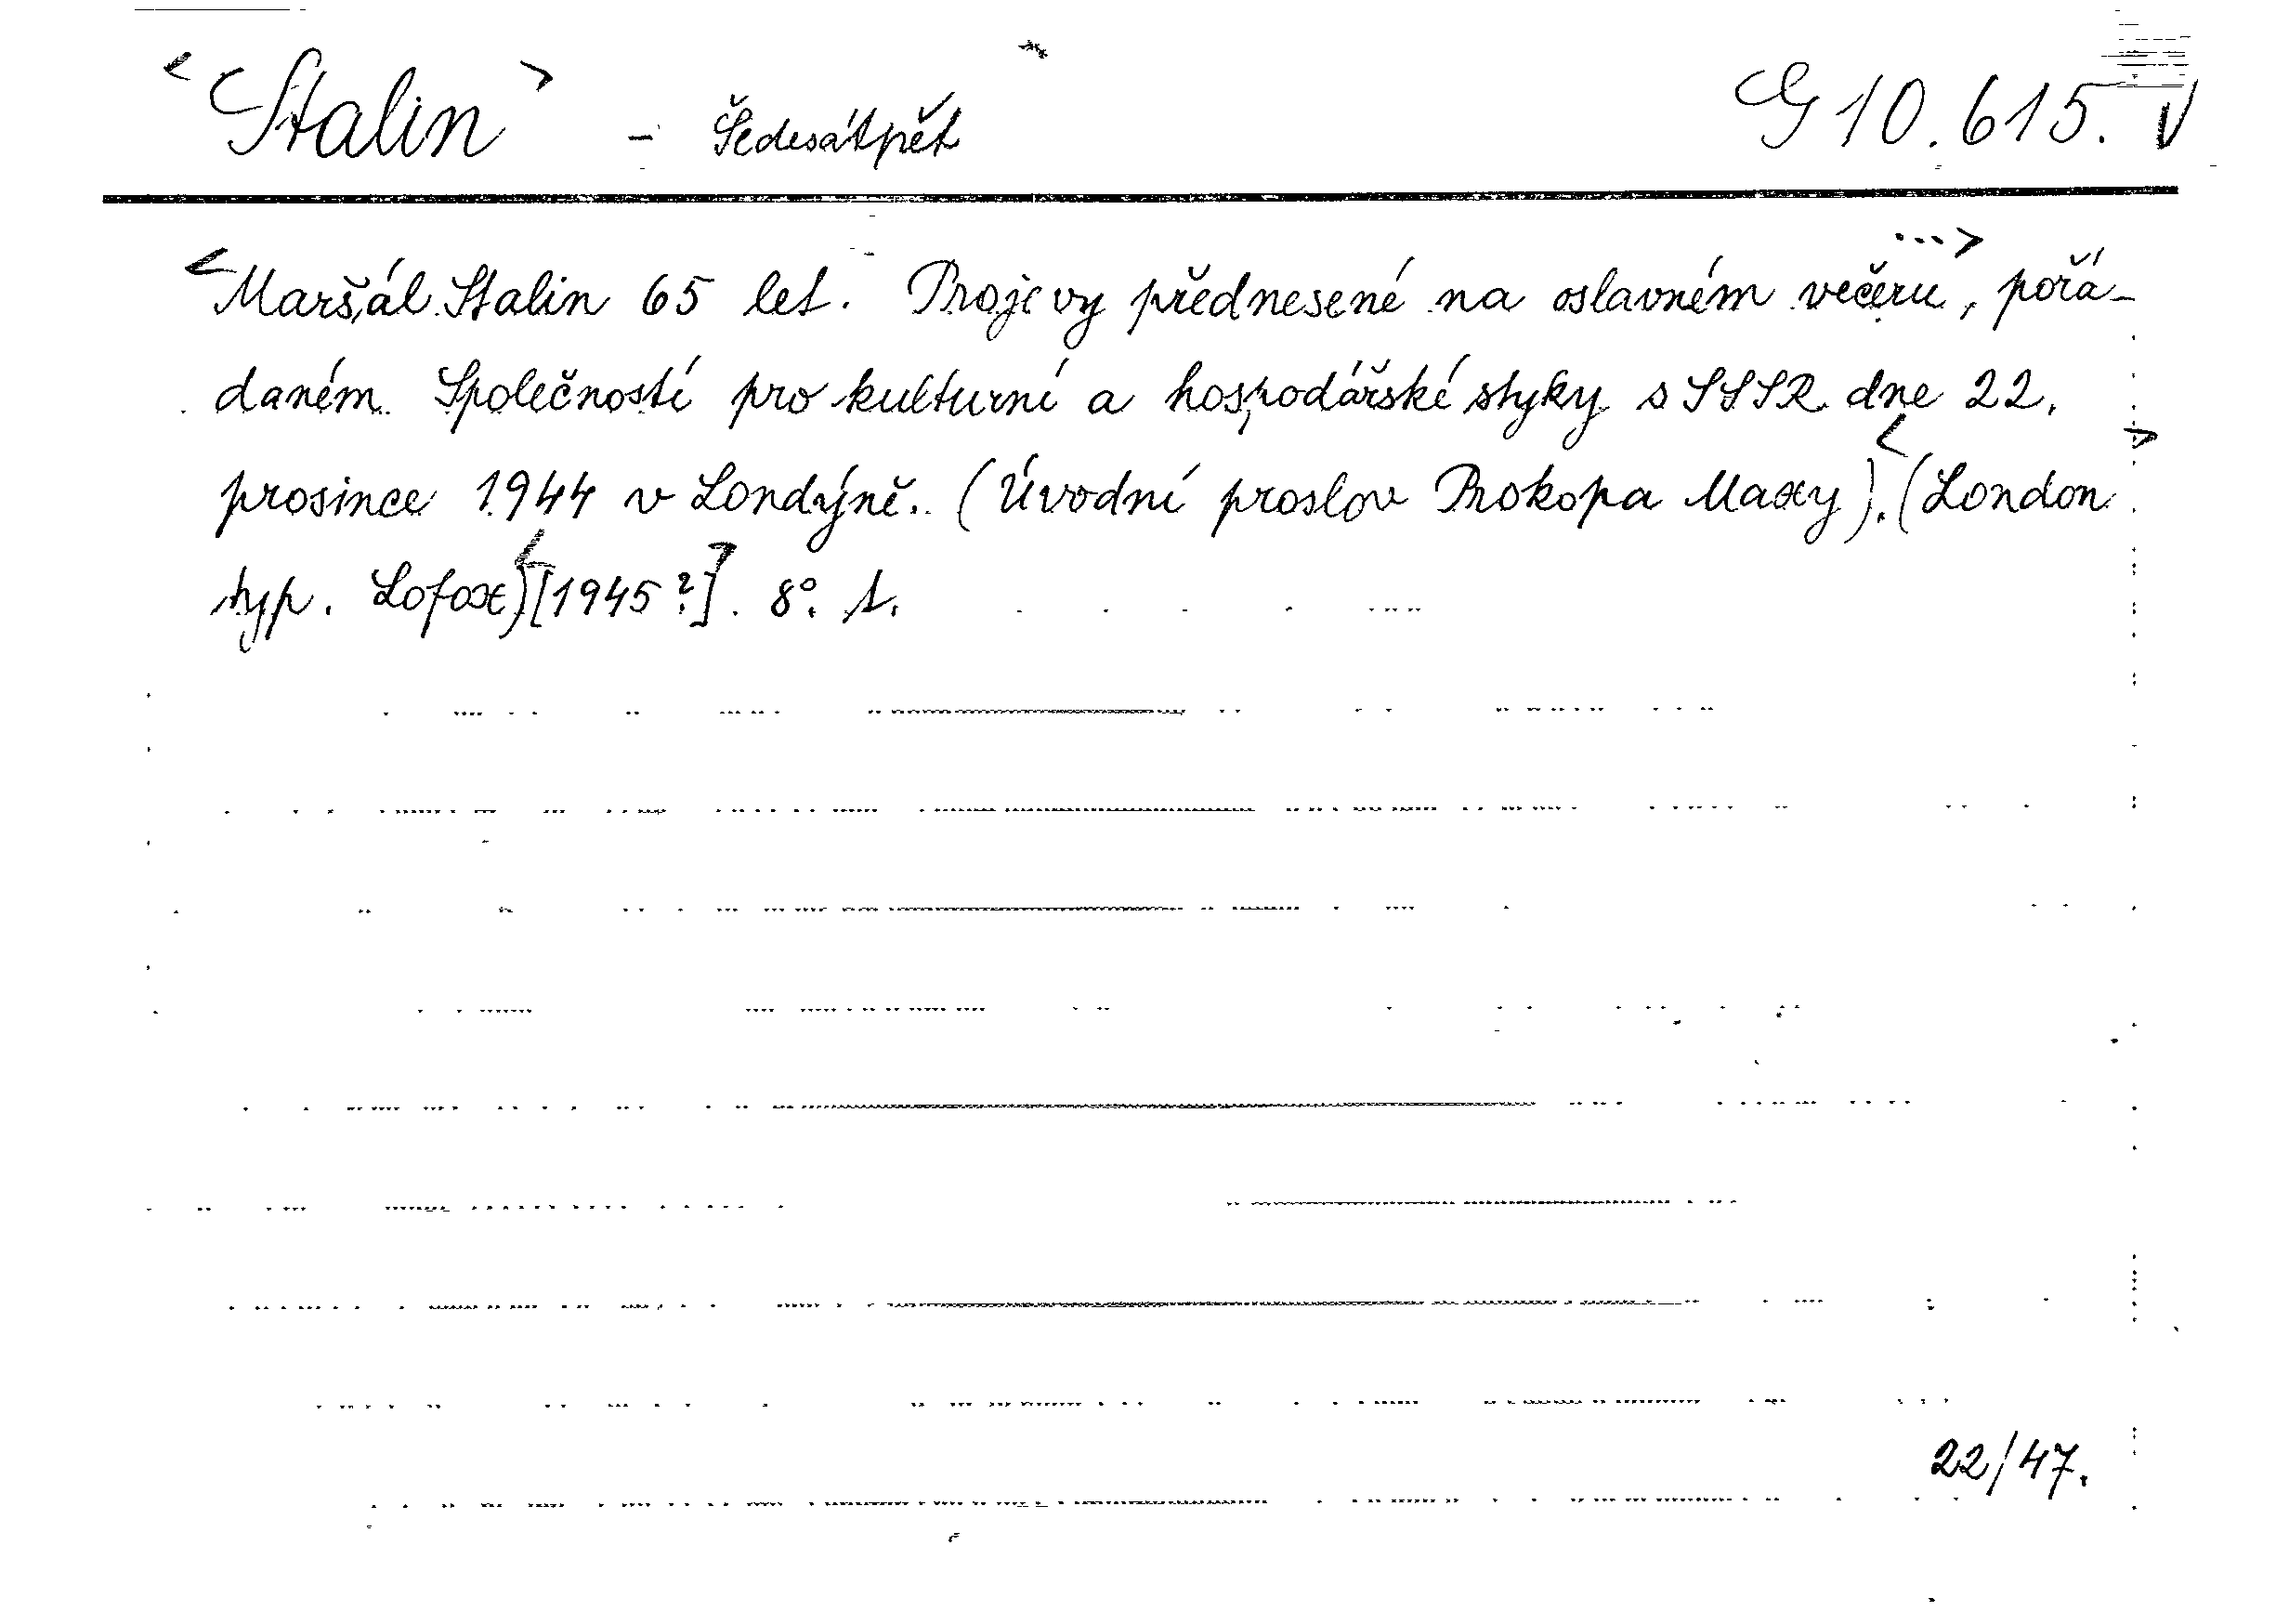 <Stalin> - Šedesátpět G 10.615. V
<Maršál Stalin 65 let. Projevy přednesené na oslavném večeru...>, pořá-
daném Společností pro kulturní a hospodářské styky s SSSR dne 22.
prosince 1944 v Londýně. (Úvodní proslov Prokopa Maxy). <(London>
typ. Lofox) <[1945?]>. 8°. 1.
22/47.